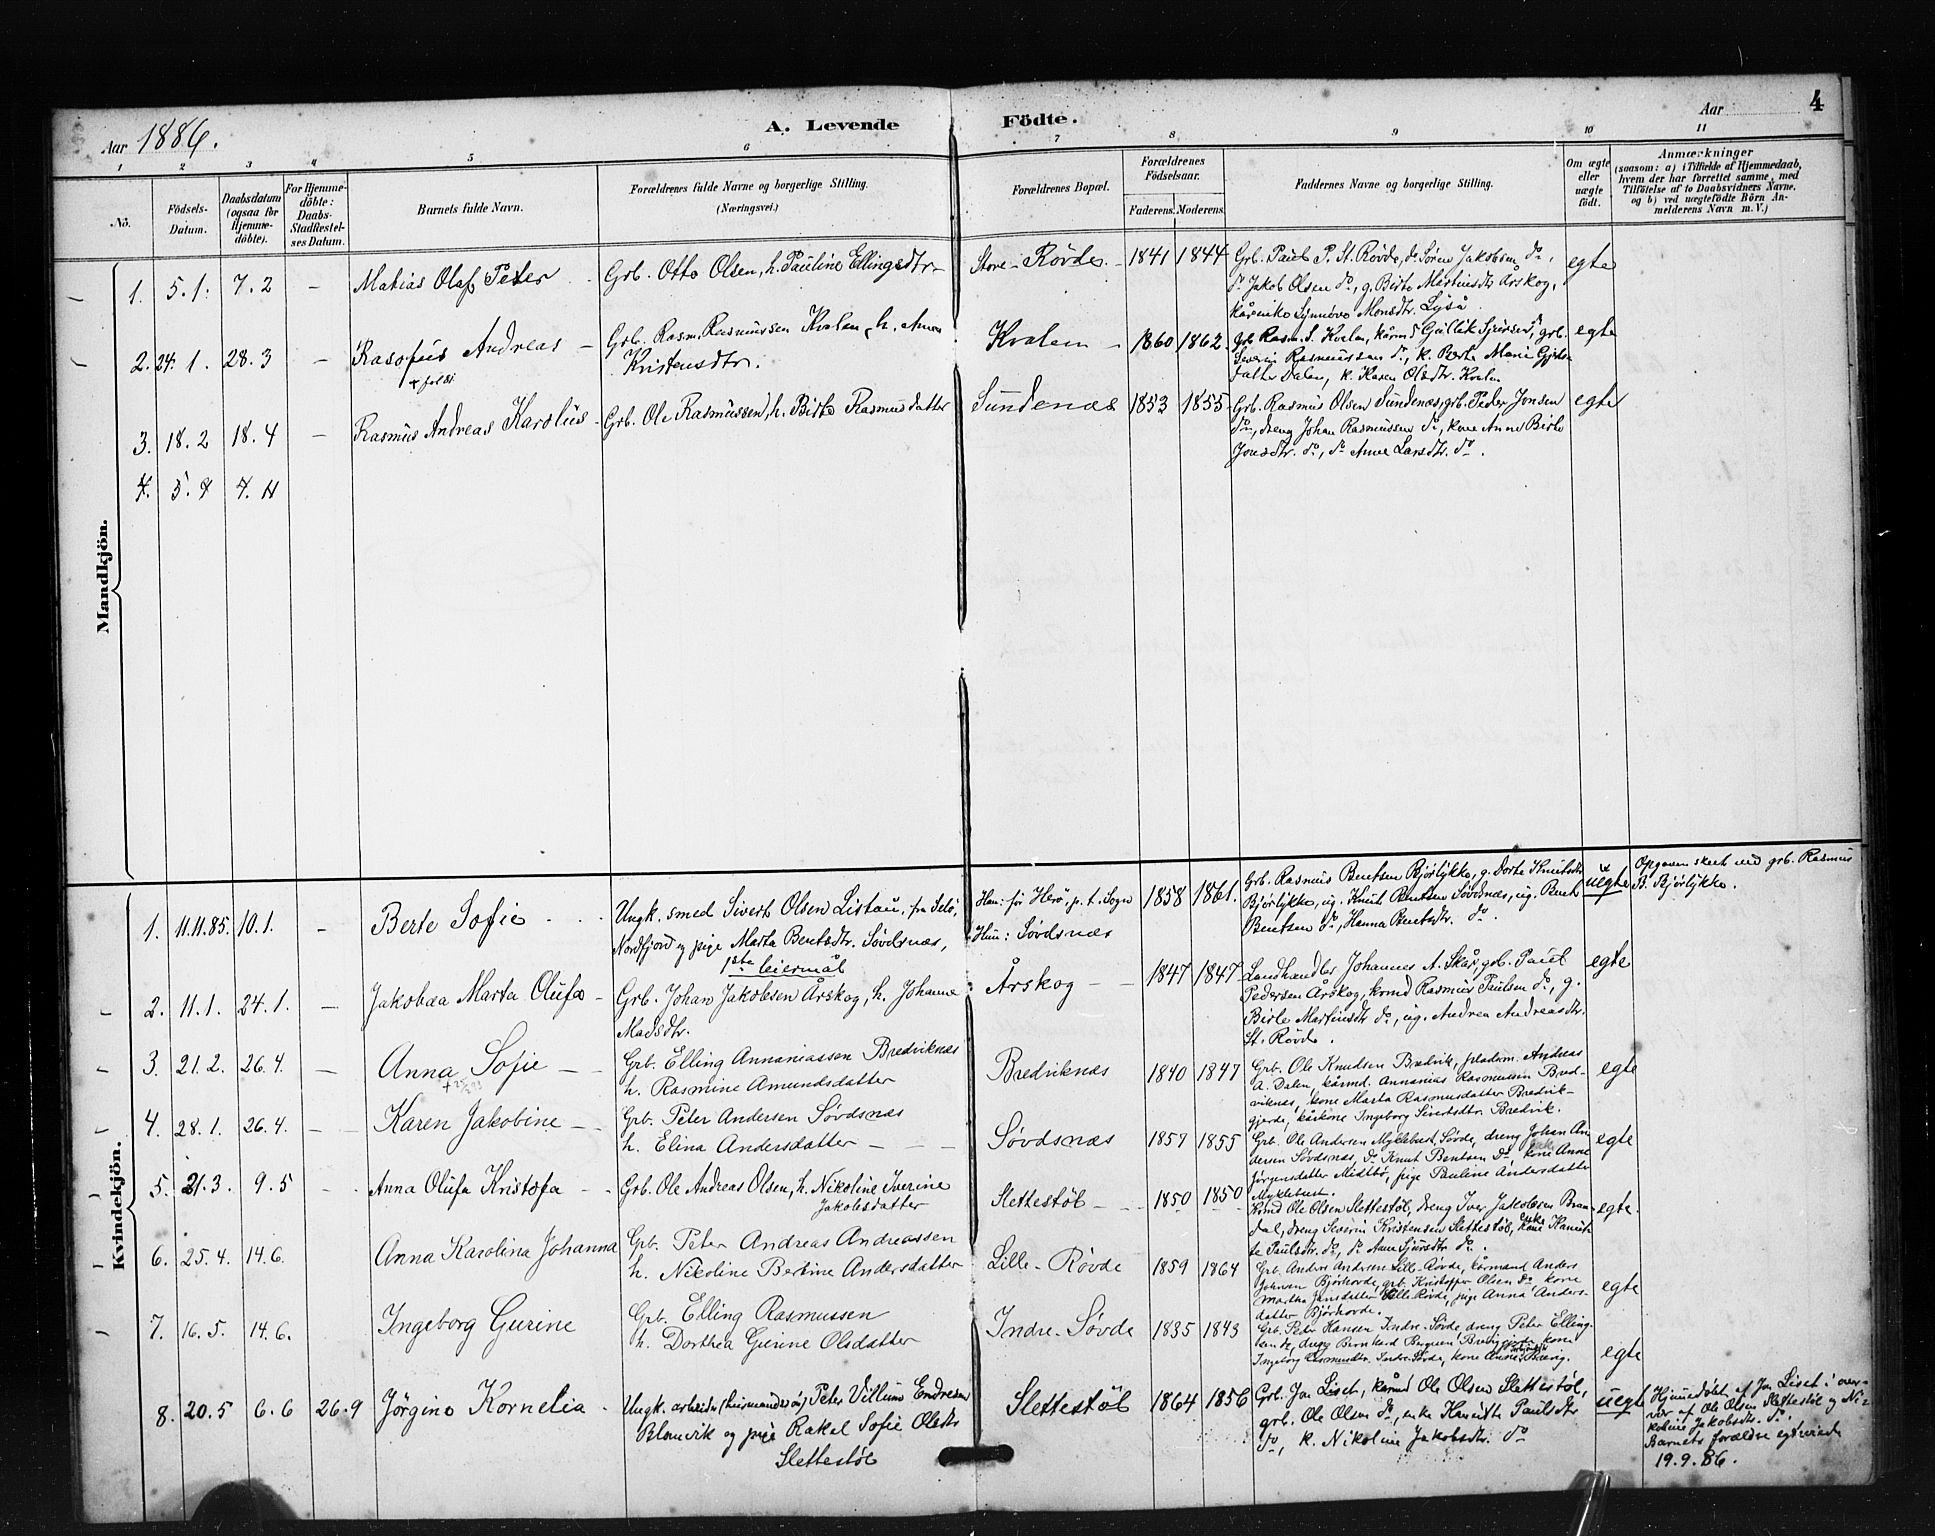 Aar 1886.
A. Levende Födte.
Aar 4
1 2 3 4 5 6 7 8 9 10 11
No.
Födsels-
Datum.
Daabsdatum
(ogsaa for
Hjemme-
döbte).
For Hjemme-
döbte:
Daabs-
Stadfæstel-
ses Datum.
Barnets fulde Navn.
Forældrenes fulde Navne og borgerlige Stilling.
(Næringsvei.)
Forældrenes Bopæl.
Forældrenes
Födselsaar.
Faderens. Moderens.
Faddernes Navne og borgerlige Stilling.
Om ægte
eller
uægte
födt.
Anmærkninger
(saasom: a) i Tilfælde af Hjemmedaab,
hvem der har forrettet samme, med
Tilföielse af to Daabsvidners Navne.
og b) ved uægtefödte Börn An-
melderens Navn m. V.)
Mandkjön.
1. 5.1. 7.2 — Matias Olaf Peter - Grb. Otto Olsen, h. Pauline Ellingsdtr Store-Røvde - 1841 1844 egte
Grb. Paul P. St. Røvde, do Søren Jakobsen do,
do Jakob Olsen do, g. Birte Martinusdtr Årskog,
Synnøve Monsdtr.
2. 24.1. 28.3 — Rasofus Andreas - Grb. Rasm. Rasmussen Kvalen, h. Anne
Kristensdtr.
Kvalen - 1860 1862 egte
Grb Rasm. S. Kvalen, kårmd Gullik Sjursen do, grb.
Severin Rasmussen do, k. Berte Marie
datter Dalen, k. Karen Olsdtr. Kvalen
3. 18.2 18.4 — Rasmus Andreas Karolus - Grb. Ole Rasmussen, h. Birte Rasmusdatter Sundenæs 1853 1855 egte
Grb. Rasmus Olsen Sundenæs, grb. Peder Jonsen
do, dreng Johan Rasmussen do, kone Anne Birte
Jonsdtr. do, do Anne Larsdtr. do.
4. 5.4 4.4
Kvindekjön.
1. 11.11.85. 10.1. — Berte Sofie - Ungk. smed Sivert Olsen Listau, fra Selö,
Nordfjord og pige Marta Bentsdtr. Søvdsnæs,
1ste leiermål
Han: för Herö, p.t. Sogn
Hun: Søvdsnæs
1858 1861.
Grb. Rasmus Bentsen Bjørlykke, g. Dorte Knutsdtr
Bjørlykke, ug. Knut Bentsen Søvdsnæs, ug. Bent
Bentsen do, Hanna Bentsdtr. do.
uegte
Opgaven skeet ved grb. Rasmus
B. Bjørlykke.
2. 11.1. 24.1. — Jakobæa Marta Olufa - Grb. Johan Jakobsen Årskog, h. Johanne
Madsdtr.
Årskog - 1847 1847 egte
Landhandler Johannes A. Skår, grb. Paul
Pedersen Årskog, krmd Rasmus Paulsen do, g.
Birte Martinusdtr do, ug. Andrea Andreasdtr.
St. Røvde.
3. 21.2. 26.4. — Anna Sofie - Grb. Elling Annaniassen Bredviknæs
h. Rasmine Amundsdatter
Bredviknæs 1840 1847 egte
Grb. Ole Knudsen Bredvik, pladsm. Andreas
A. Dalen, kårmd. Annanias Rasmussen Bred-
viknæs, kone Marta Rasmusdatter Bredvik-
gjerde, kårkone Ingeborg Sivertsdtr. Bredvik.
4. 28.1. 26.4. — Karen Jakobine - Grb. Peter Andersen Søvdsnæs
h. Elina Andersdatter
Søvdsnæs 1857 1855 egte
Grb. Ole Andersen Myklebust, Søvde, dreng Johan An-
dersen Søvdsnæs, do Knut Bentsen do kone Anne
Jørgensdatter Midtbø, pige Pauline Andersdatter
Myklebust.
5. 21.3. 9.5 — Anna Olufa Kristofa - Grb. Ole Andreas Olsen, h. Nikoline Iverine
Jakobsdatter
Slettestøl - 1850 1850 egte.
Krmd Ole Olsen Slettestøl, dreng Iver Jakobsen Bran-
dal, dreng Severin Kristensen Slettestøl, enke
Paulsdtr. do, do Anne Sjursdtr do.
6. 25.4. 14.6. Anna Karolina Johanna Grb. Peter Andreas Andreassen
h. Nikoline Bertine Andersdatter
Lille-Røvde 1859 1864 egte
Grb. Anders Andersen Lille-Røvde, kårmand Anders
Johnsen Bjørhovde, grb. Kristoffer Olsen do kone
Martha Jensdatter Lille-Røvde, pige Anna Anders-
datter Bjørhovde.
7. 16.5. 14.6. Ingeborg Gurine Grb. Elling Rasmussen
h. Dorthea Gurine Olsdatter
Indre-Søvde 1835 1843 egte
Grb. Peter Hansen Indre-Søvde, dreng Peter
Indre-Søvde, kone
8. 20.5 6.6 26.9 Jørgine Kornelia - Ungk. arbeider Peter Villum Endresen
Blomvik og pige Rakel Sofie Olsdtr
Slettestøl
Slettestøl 1864 1856
Grb. Jon Liset, kårmd Ole Olsen Slettestøl,
grb. Ole Olsen do, enke Paulsdtr
do, k. Nikoline Jakobsdtr. do
uegte
Hjemmedøbt af Jon Liset i over-
vær af Ole Olsen Slettestøl og Ni-
koline Jakobsdtr. do.
Barnets forældre egteviede
19.9.86.